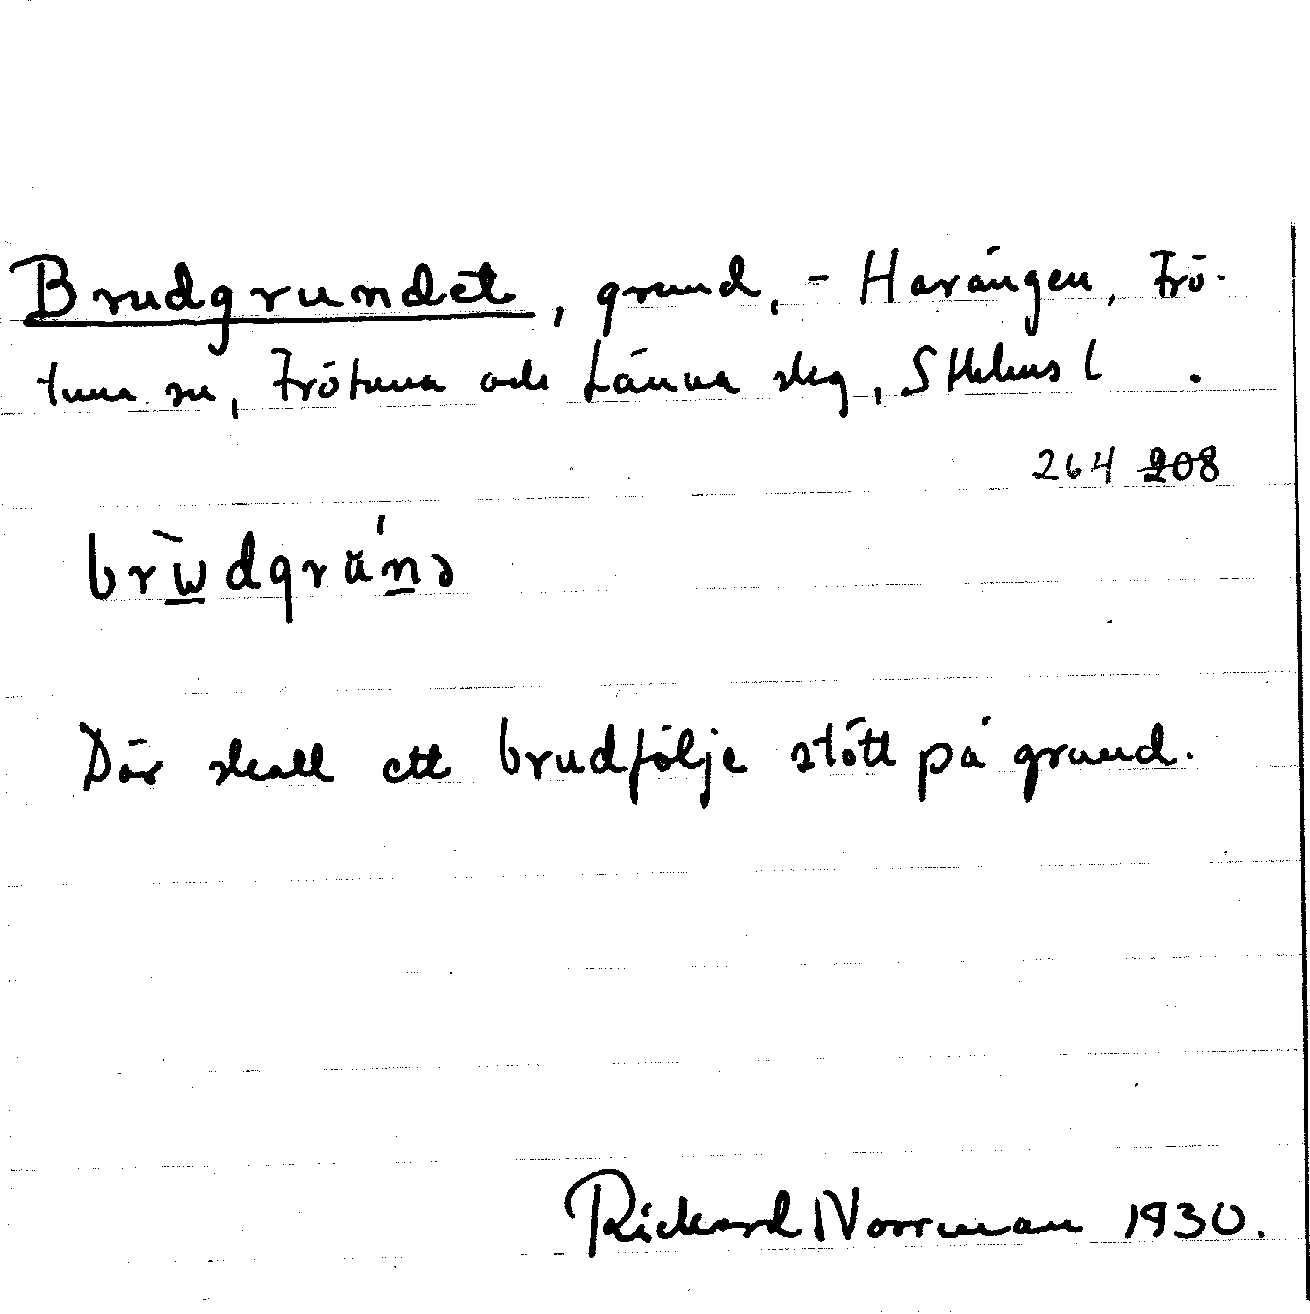 Brudgrundet, grund, – Harängen, Frö-
tuna sn, Frötuna och Länna skg, Sthlms l .
264 208
brẁdgrŭ'nə
Där skall ett brudfölje stött på grund.
Rickard Norrman 1930.